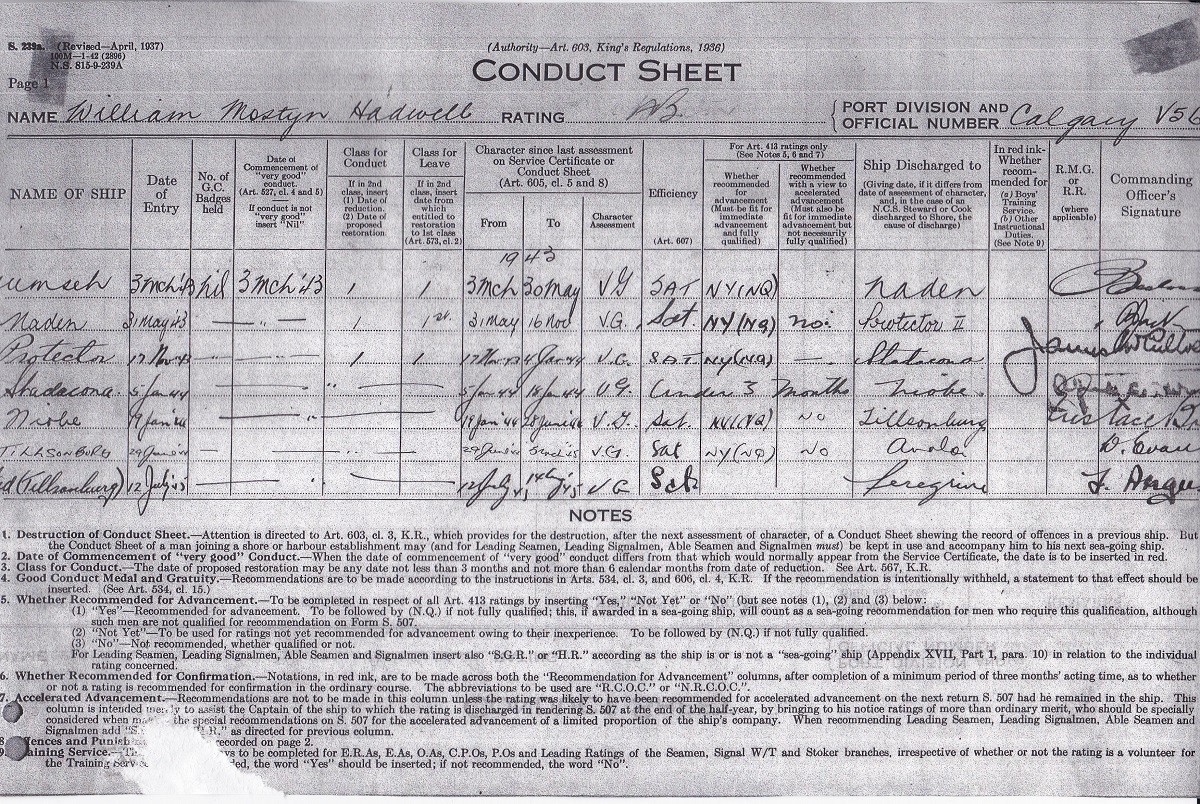 S. 239a. (Revised—April, 1937)
100M—1-42 (2896)
N.S. 815-9-239A
Page 1
(Authority—Art. 603, King's Regulations, 1936)
CONDUCT SHEET
NAME William Mostyn Hadwell RATING AB. PORT DIVISION AND OFFICIAL NUMBER Calgary V56
NAME OF SHIP
Date of Entry
No. of G.C. Badges held
Date of Commencement of "very good" conduct. (Art. 527, cl. 4 and 5) If conduct is not "very good" insert "Nil"
Class for Conduct
If in 2nd class, insert (1) Date of reduction. (2) Date of proposed restoration.
Class for Leave
If in 2nd class, insert date from which entitled to restoration to 1st class (Art. 573, cl. 2)
Character since last assessment on Service Certificate or Conduct Sheet (Art. 605, cl. 5 and 8)
From To Character Assessment
Efficiency (Art. 607)
For Art. 413 ratings only (See Notes 5, 6 and 7)
Whether recommended for advancement (Must be fit for immediate advancement and fully qualified)
Whether recommended with a view to accelerated advancement (Must also be fit for immediate advancement but not necessarily fully qualified)
Ship Discharged to (Giving date, if it differs from date of assessment of character, and, in the case of an N.C.S. Steward or Cook discharged to Shore, the cause of discharge)
In red ink- Whether recommended for (a) Boys' Training Service. (b) Other Instructional Duties. (See Note 9)
R.M.G. or R.R. (where applicable)
Commanding Officer's Signature
1943
umseh 3 Mch '43 nil 3 Mch '43 1 1 3 Mch 30 May V G SAT NY(NQ) Naden
Naden 31 May '43 — " — 1 1st. 31 May 16 Nov V.G. Sat. NY(NQ) no. Protector II
Protector 17 Nov 43 — " — 1 1 17 Nov 43 4 Jan 44 V.G. SAT NY(NQ) — Stadacona
Stadacona 5 Jan 44 " 5 Jan 44 18 Jan 44 V.G. Under 3 Months Niobe
Niobe 19 Jan 44 " 19 Jan 44 28 June 44 V.G. Sat. NY(NQ) NO Tillsonburg
TILLSONBURG 29 June 44 " 29 June 44 V.G. Sat NY(NQ) No Avalon D. Evan
d (Tillsonburg) 12 July 45 " 12 July 45 14 Aug 45 V G Sat Peregrine J. Angu
NOTES
1. Destruction of Conduct Sheet.—Attention is directed to Art. 603, cl. 3, K.R., which provides for the destruction, after the next assessment of character, of a Conduct Sheet shewing the record of offences in a previous ship. But
the Conduct Sheet of a man joining a shore or harbour establishment may (and for Leading Seamen, Leading Signalmen, Able Seamen and Signalmen must) be kept in use and accompany him to his next sea-going ship.
2. Date of Commencement of "very good" Conduct.—When the date of commencement of "very good" conduct differs from that which would normally appear from the Service Certificate, the date is to be inserted in red.
3. Class for Conduct.—The date of proposed restoration may be any date not less than 3 months and not more than 6 calendar months from date of reduction. See Art. 567, K.R.
4. Good Conduct Medal and Gratuity.—Recommendations are to be made according to the instructions in Arts. 534, cl. 3, and 606, cl. 4, K.R. If the recommendation is intentionally withheld, a statement to that effect should be
inserted. (See Art. 534, cl. 15.)
5. Whether Recommended for Advancement.—To be completed in respect of all Art. 413 ratings by inserting "Yes," "Not Yet" or "No" (but see notes (1), (2) and (3) below:
(1) "Yes"—Recommended for advancement. To be followed by (N.Q.) if not fully qualified; this, if awarded in a sea-going ship, will count as a sea-going recommendation for men who require this qualification, although
such men are not qualified for recommendation on Form S. 507.
(2) "Not Yet"—To be used for ratings not yet recommended for advancement owing to their inexperience. To be followed by (N.Q.) if not fully qualified.
(3) "No"—Not recommended, whether qualified or not.
For Leading Seamen, Leading Signalmen, Able Seamen and Signalmen insert also "S.G.R." or "H.R." according as the ship is or is not a "sea-going" ship (Appendix XVII, Part 1, para. 10) in relation to the individual
rating concerned.
6. Whether Recommended for Confirmation.—Notations, in red ink, are to be made across both the "Recommendation for Advancement" columns, after completion of a minimum period of three months' acting time, as to whether
or not a rating is recommended for confirmation in the ordinary course. The abbreviations to be used are "R.C.O.C." or "N.R.C.O.C.".
7. Accelerated Advancement.—Recommendations are not to be made in this column unless the rating was likely to have been recommended for accelerated advancement on the next return S. 507 had he remained in the ship. This
column is intended merely to assist the Captain of the ship to which the rating is discharged in rendering S. 507 at the end of the half-year, by bringing to his notice ratings of more than ordinary merit, who should be specially
considered when the special recommendations on S. 507 for the accelerated advancement of a limited proportion of the ship's company. When recommending Leading Seamen, Leading Signalmen, Able Seamen and
Signalmen add R." as directed for previous column.
8 ences and Punish recorded on page 2.
9. aining Service.— ys to be completed for E.R.As, E.As, O.As, C.P.Os, P.Os and Leading Ratings of the Seamen, Signal W/T and Stoker branches, irrespective of whether or not the rating is a volunteer for
the Training Serv ded, the word "Yes" should be inserted; if not recommended, the word "No".